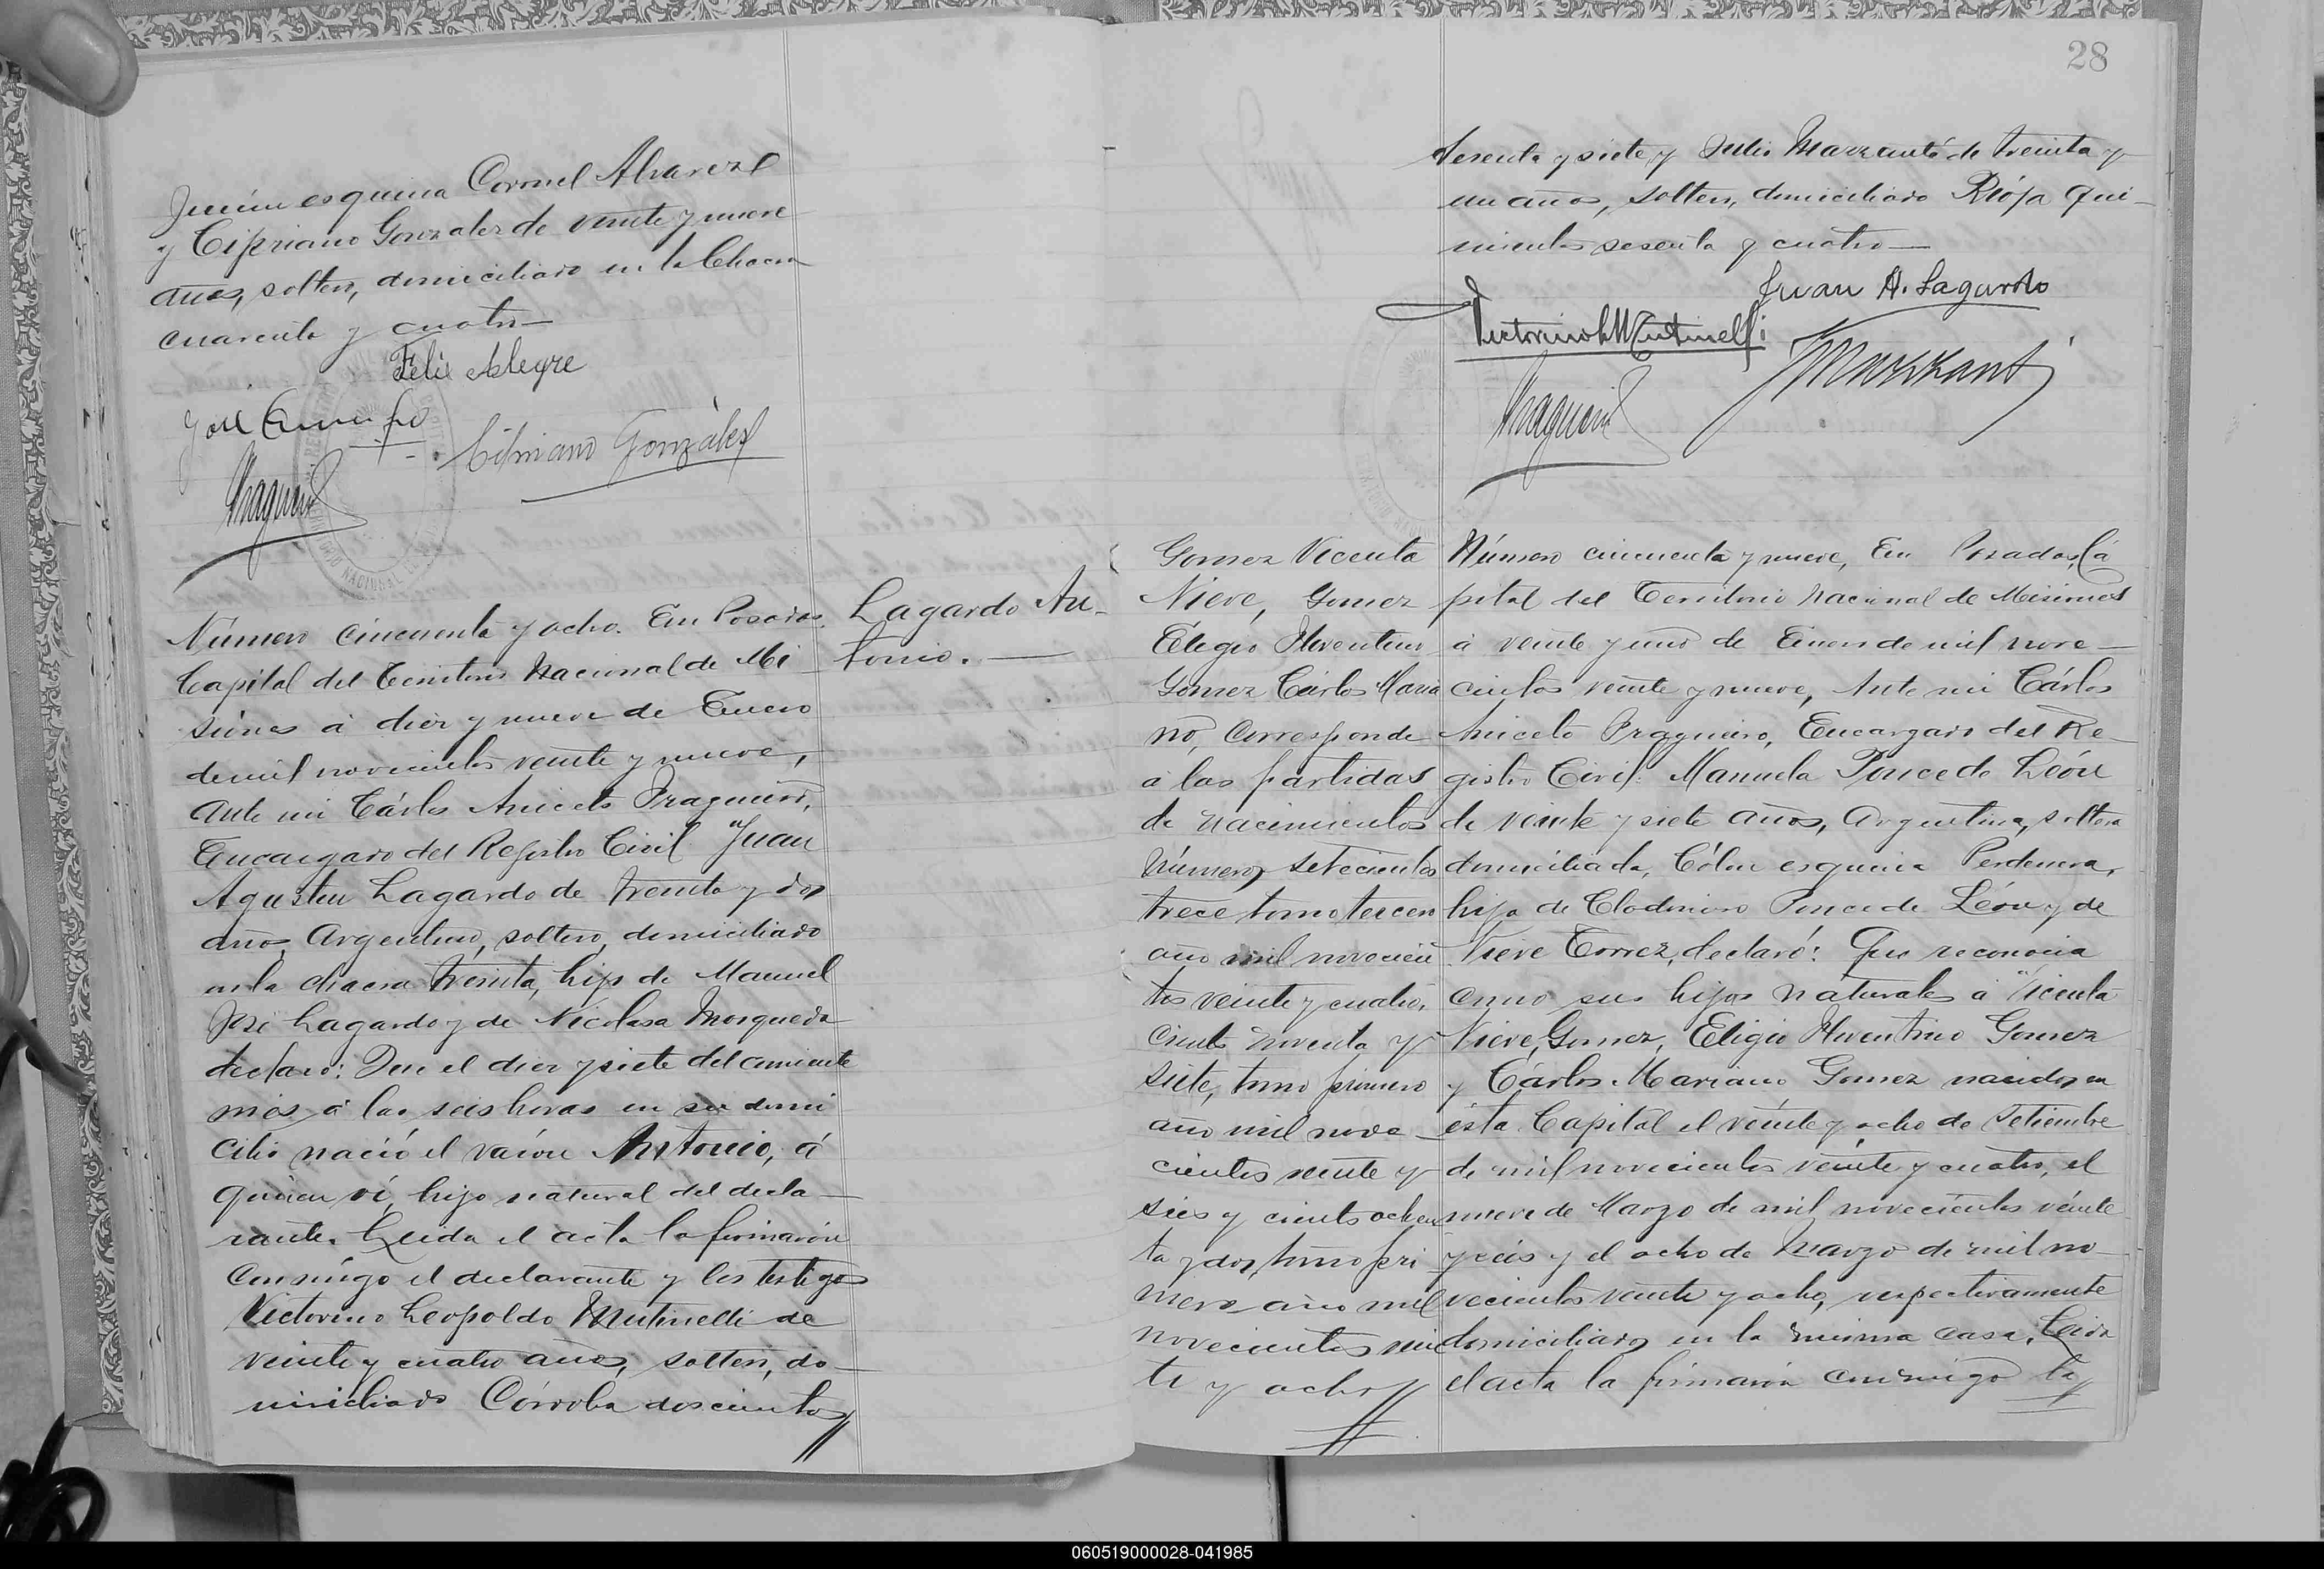 Junín esquina Coronel Alvarez
y Cipriano Gonzalez de veinte y nueve
años, soltero, domiciliado en la Chacra
cuarenta y cuatro—
Felix Alegre
José
Cipriano González
Número cincuenta y ocho. En Posadas,
Capital del Territorio Nacional de Mi
siones á diez y nueve de Enero
de mil novecientos veinte y nueve,
ante mi Cárlos Aniceto Fragueiro,
Encargado del Registro Civil Juan
Agustin Lagardo de treinta y dos
años, Argentino, soltero, domiciliado
en la chacra treinta, hijo de Manuel
José Lagardo y de Nicolasa Morqueda
declaró: Que el diez y siete del corriente
mes á las seis horas en su domi
cilio nació el varón Antonio, á
quien ví, hijo natural del decla—
rante. Leida el acta la firmaron
conmigo el declarante y los testigos
Victorino Leopoldo Mutinelli de
veinte y cuatro años, soltero, do—
miciliado Córdoba doscientos
Lagardo An-
tonio.—
28
sesenta y siete y Julio Marzanté de treinta y
un años, soltero, domiciliado Rioja qui—
nientos sesenta y cuatro—
Juan A. Lagardo
Victorino L Mutinelli
JMarzant
Gomez Vicenta
Nieve, Gomez
Eligio Florentino
Gomez Cárlos Maria
no, Corresponde
á las partidas
de nacimientos
números setecientos
trece tomo tercero
año mil novecien
tos veinte y cuatro,
ciento noventa y
siete, tomo primero
año mil nove—
cientos veinte y
seis y ciento ochen
ta y dos, tomo pri
mero año mil
novecientos vein
te y ocho
Número cincuenta y nueve, En Posadas, Ca
pital del Territorio Nacional de Misiones
á veinte y uno de Enero de mil nove—
cientos veinte y nueve, Ante mi Cárlos
Aniceto Fragueiro, Encargado del Re—
gistro Civil: Manuela Ponce de León
de veinte y siete años, Argentina, soltera
domiciliada, Cólon esquina Perdenera,
hija de Clodomiro Ponce de León y de
Nieve Torrez, declaró: Que reconocia
como sus hijos naturales á Vicenta
Nieve Gomez, Eligio Florentino Gomez
y Cárlos Mariano Gomez nacidos en
ésta Capital el veinte y ocho de Setiembre
de mil novecientos veinte y cuatro, el
nueve de Marzo de mil novecientos veinte
y seis y el ocho de Marzo de mil no—
vecientos veinte y ocho, respectivamente
domiciliados en la misma casa. Leida
el acta la firmaron conmigo la
060519000028-041985